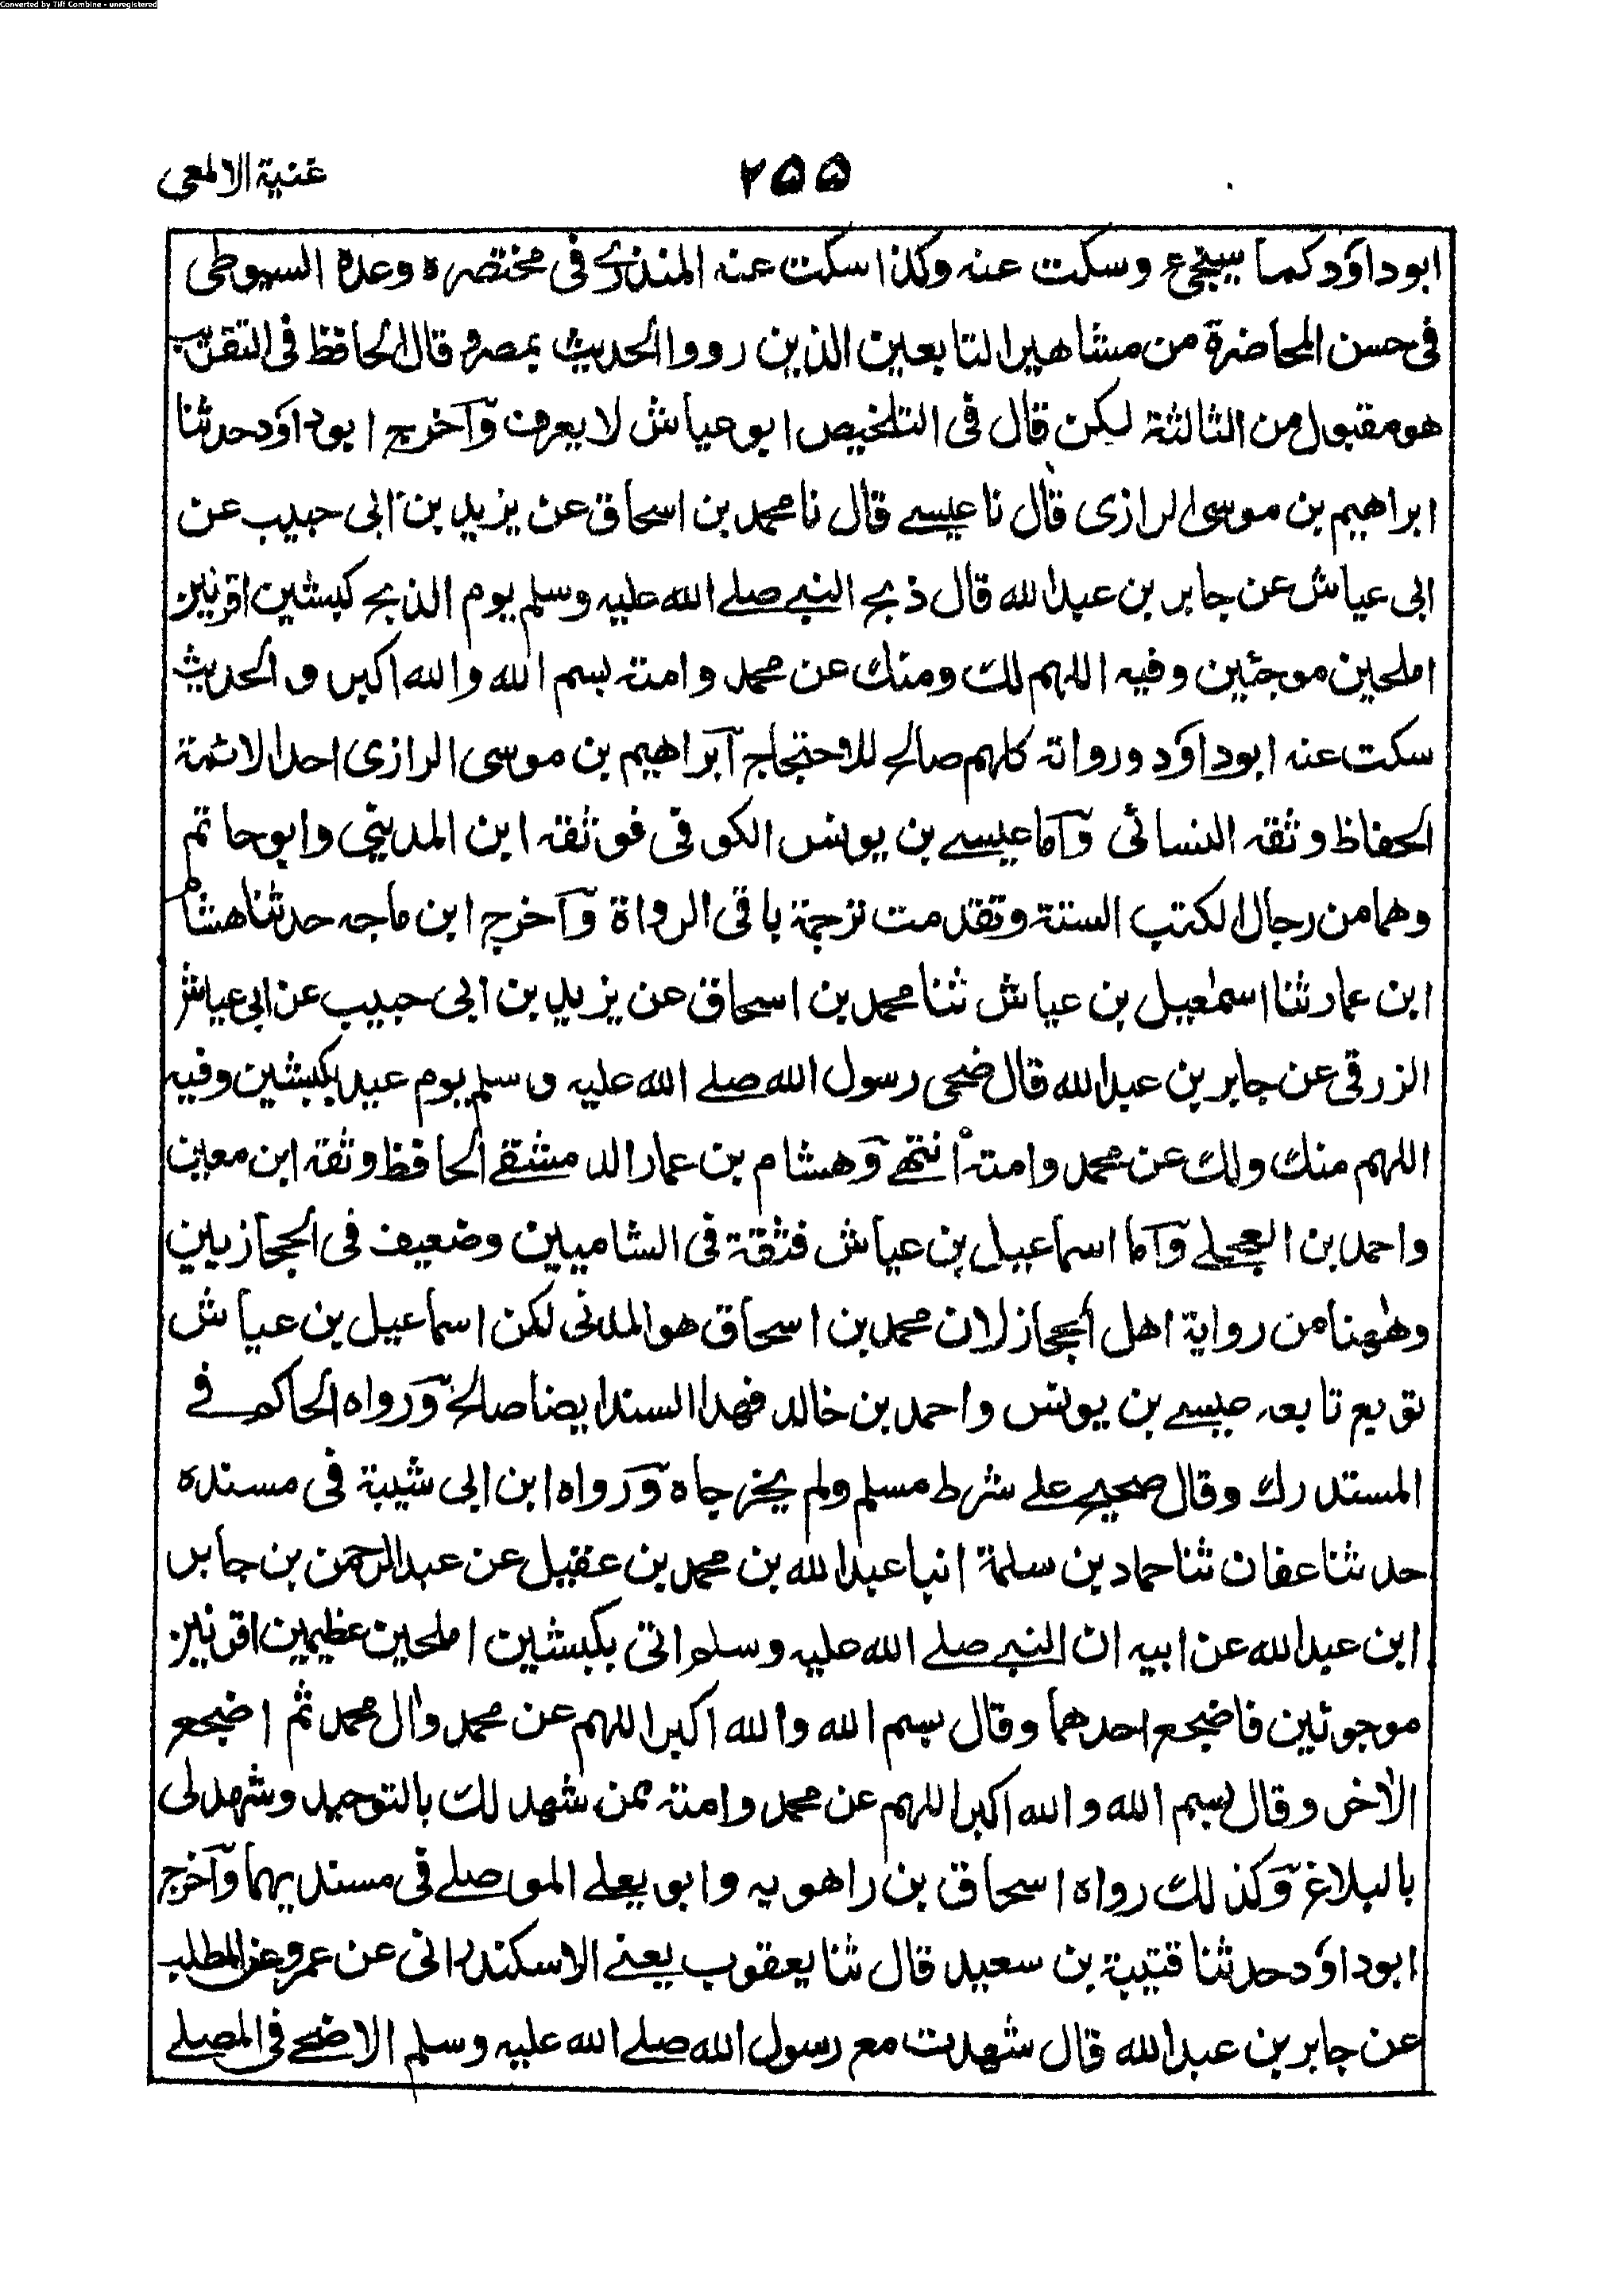 Converted by Tiff Combine - unregistered
غنية الالمعى
٢٥٥
ابوداؤد كما سيجئ وسكت عنه وكذا سكت عنه المنذرى فى مختصره وعده السيوطى
فى حسن المحاضرة من مشاهير التابعين الذين رووا الحديث بمصر وقال الحافظ فى التقريب
هو مقبول من الثالثة لكن قال فى التلخيص ابو عياش لا يعرف وآخرج ابوداؤد حدثنا
ابراهيم بن موسى الرازى قال نا عيسے قال نا محمد بن اسحاق عن يزيد بن ابى حبيب عن
ابى عياش عن جابر بن عبد الله قال ذبح النبے صلے الله عليه وسلم يوم الذبح كبشين اقرنين
املحين موجئين وفيه اللهم لك ومنك عن محمد وامته بسم الله والله اكبر والحديث
سكت عنه ابوداؤد ورواته كلهم صالح للاحتجاج آبراهيم بن موسى الرازى احد الائمة
الحفاظ وثقه النسائى وآما عيسے بن يونس الكوفى فوثقه ابن المدينى وابو حاتم
وهما من رجال الكتب الستة وتقدمت ترجمة باقى الرواة وآخرج ابن ماجه حدثنا هشام
ابن عمار ثنا اسمٰعيل بن عياش ثنا محمد بن اسحاق عن يزيد بن ابى حبيب عن ابى عياش
الزرقى عن جابر بن عبد الله قال ضحى رسول الله صلے الله عليه وسلم يوم عيد بكبشين وفيه
اللهم منك ولك عن محمد وامته انتهے وٓهشام بن عمار الدمشقے الحافظ وثقه ابن معين
واحمد بن العجلے وآما اسماعيل بن عياش فثقة فى الشاميين وضعيف فى الحجازيين
وهٰهنا من رواية اهل الحجاز لان محمد بن اسحاق هو المدنى لكن اسماعيل بن عياش
توبع تابعه عيسے بن يونس واحمد بن خالد فهذا السند ايضا صالح وٓرواه الحاكم فے
المستدرك وقال صحيح علے شرط مسلم ولم يخرجاه وٓرواه ابن ابى شيبة فى مسنده
حدثنا عفان ثنا حماد بن سلمة انبا عبد الله بن محمد بن عقيل عن عبد الرحمن بن جابر
ابن عبد الله عن ابيه ان النبے صلے الله عليه وسلم اتى بكبشين املحين عظيمين اقرنين
موجوئين فاضجع احدهما وقال بسم الله والله اكبر اللهم عن محمد وال محمد ثم اضجع
الاخر وقال بسم الله والله اكبر اللهم عن محمد وامته ممن شهد لك بالتوحيد وشهد لى
بالبلاغ وٓكذلك رواه اسحاق بن راهويه وابو يعلے الموصلے فى مسنديهما وآخرج
ابوداؤد حدثنا قتيبة بن سعيد قال ثنا يعقوب يعنے الاسكندرانى عن عمرو عن المطلب
عن جابر بن عبد الله قال شهدت مع رسول الله صلے الله عليه وسلم الاضحے فى المصلے